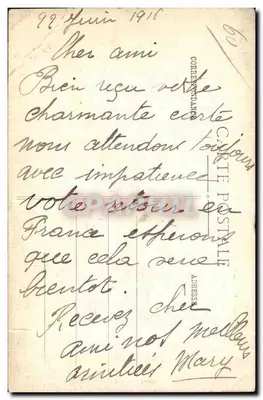 22 Juin 1916
60
Cher ami
Bien reçu votre
charmante carte
nous attendons toujours
avec impatience
votre retour en
France esperons
que cela sera
bientot.
Recevez cher
ami nos meilleurs
amitiées Mary
CORRESPONDANCE
CARTE POSTALE
ADRESSE